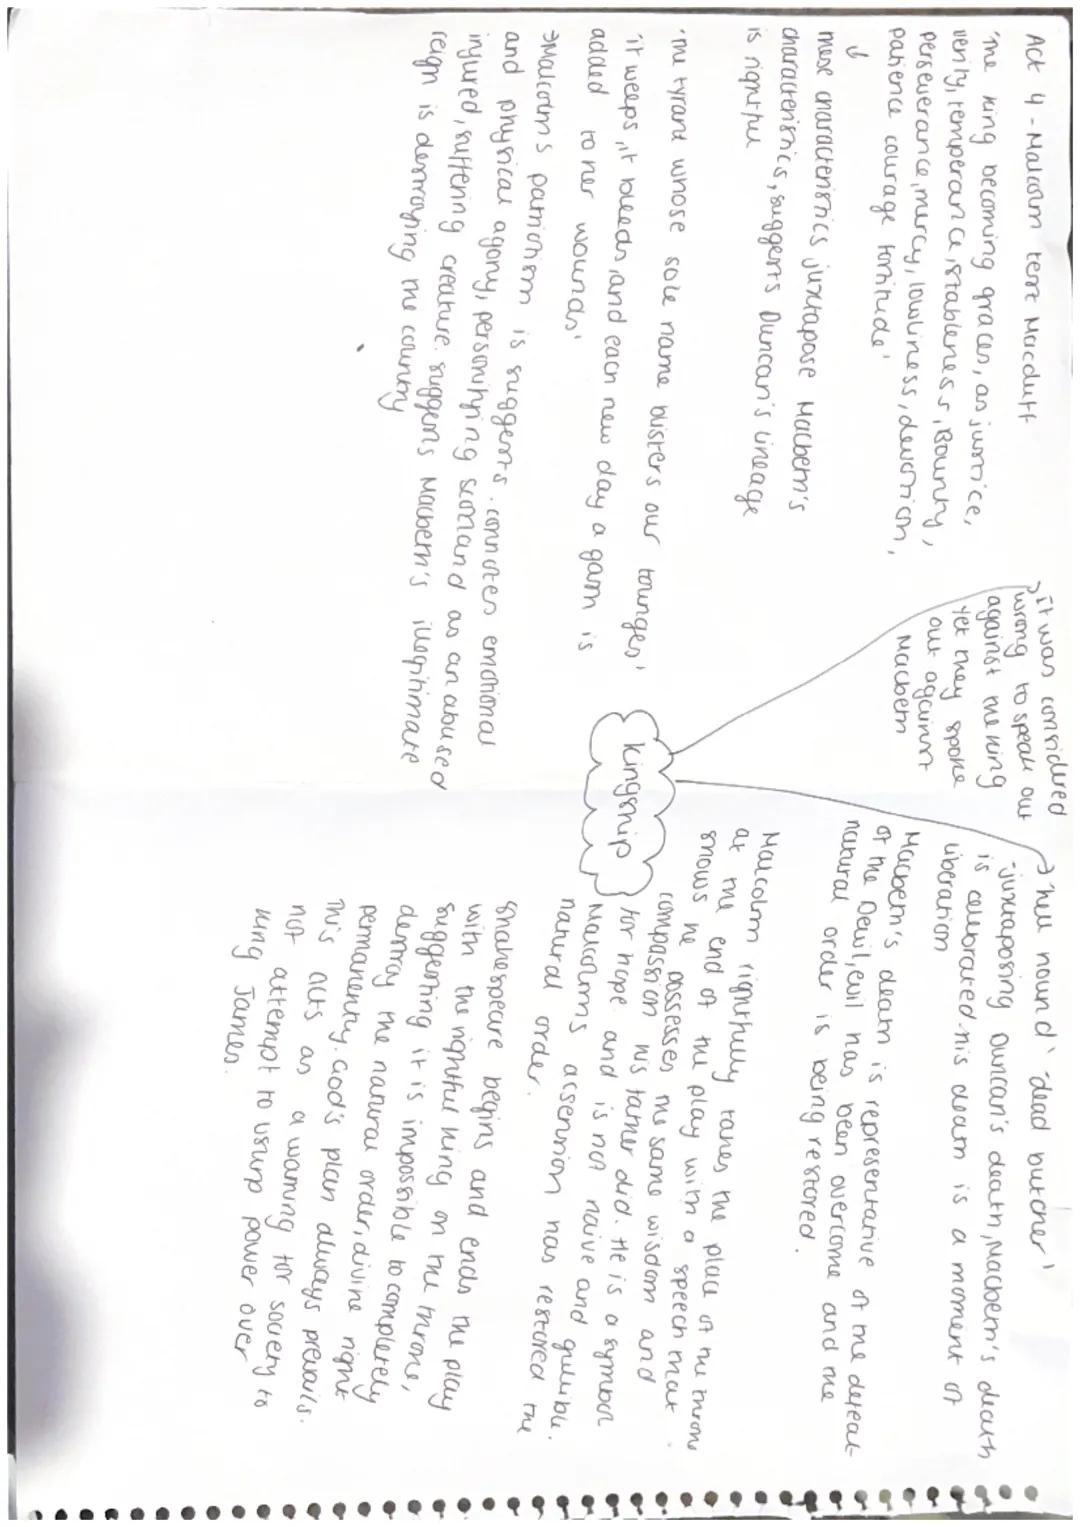 Act 4 - Malcolm test Macduff
'The king becoming graces, as justice,
verity, temperance, stableness, Bounty,
perseverance, mercy, lowliness, devotion,
patience courage fortitude'
these characteristics juxtapose Macbeth's
characteristics, suggests Duncan's lineage
is rightful
'the tyrant whose sole name blisters our tounges'
'it weeps, it bleeds, and each new day a gash is
added to her wounds'
→Malcolm's patriotism is suggests. connotes emotional
and physical agony, personifying scotland as an abused
injured, suffering creature. suggests Macbeth's illegitimate
reign is destroying the country
→it was considered
wrong to speak out
against the king
yet they spoke
out against
Macbeth
kingship
→'hell hound' 'dead butcher'
-juxtaposing Duncan's death, Macbeth's death
is celebrated-his death is a moment of
liberation
Macbeth's death is representative of the defeat
of the Devil, evil has been overcome and the
natural order is being restored.
Malcolm rightfully takes the place of the throne
at the end of the play with a speech that
shows he possesses the same wisdom and
compassion his father did. He is a symbol
for hope and is not naive and gullible.
Malcolms ascension has restored the
natural order.
Shakespeare begins and ends the play
with the rightful king on the throne,
suggesting it is impossible to completely
destroy the natural order, divine right
permanently. God's plan always prevails.
This acts as a warning for society to
not attempt to usurp power over
king James.